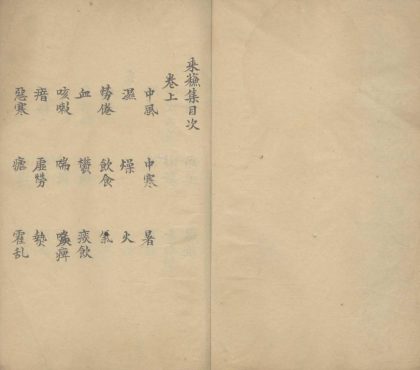 采蕪集目次
卷上
中風 中寒 暑
濕 燥 火
勞倦 飲食 氣
血 鬱 痰飲
咳嗽 喘 痺
痞 虛勞 熱
惡寒 瘧 霍乱